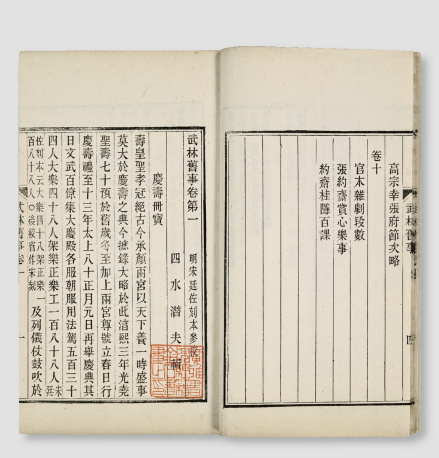 高宗幸張府節次略
卷十
官本雜劇段數
張約齋賞心樂事
約齋桂隱百課
武林舊事
四
武林舊事卷第一
明宋廷佐刻本參校
四水潛夫輯
慶壽冊寶
壽皇聖孝冠絕古今承顏兩宮以天下養一時盛事
莫大於慶壽之典今摭錄大略於此淳熙三年光堯
聖壽七十預於舊歲冬至加上兩宮尊號立春日行
慶壽禮至十三年太上八十正月元日再舉慶典其
日文武百僚集大慶殿各服朝服用法駕五百三十
四人大樂四十八人架樂正樂工一百八十八人宋廷
佐刻本云大樂四十八架正樂一
百八十八人○後 省作宋刻
及列儀仗鼓吹於
武林舊事卷一
一